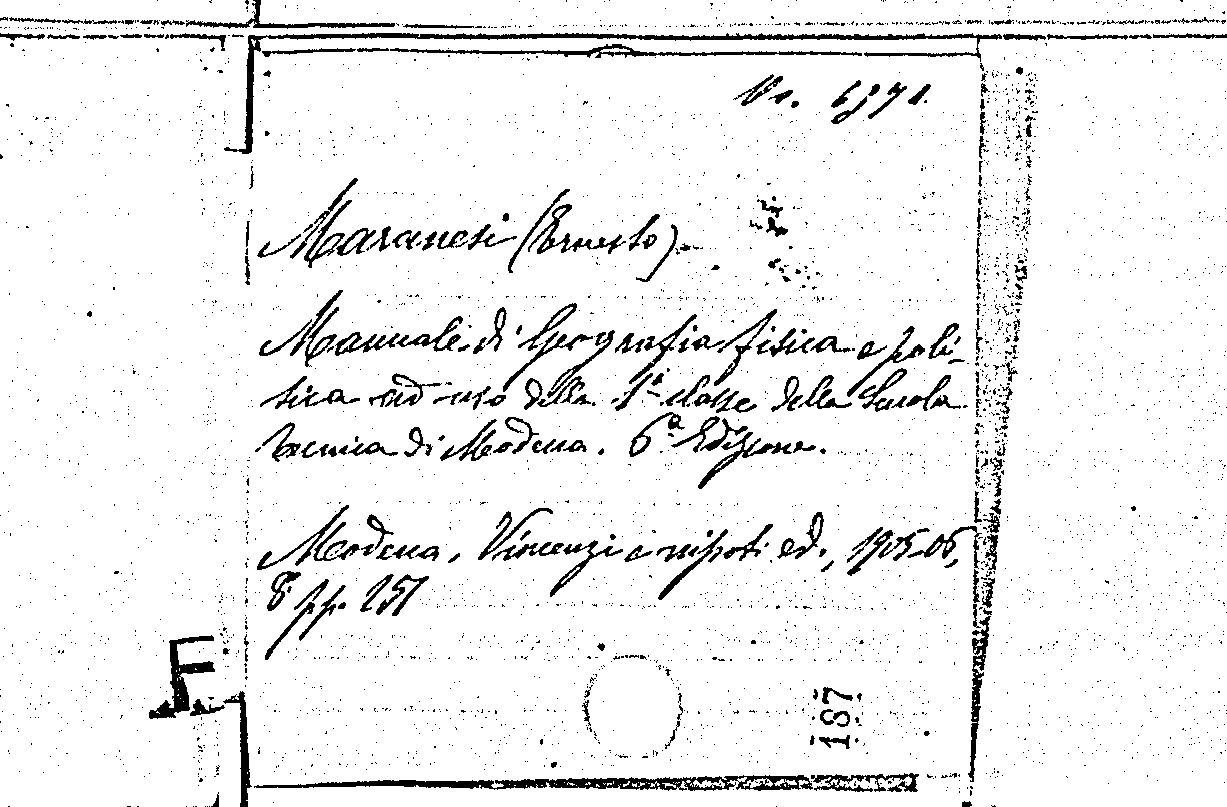 Maranesi (Ernesto).
Manuale di Geografia fisica e poli-
tica ad uso della 1ª classe della Scuola
tecnica di Modena. 6ª Edizione.
Modena, Vincenzi e nipoti ed., 1905-06,
8° pp. 257
F
187